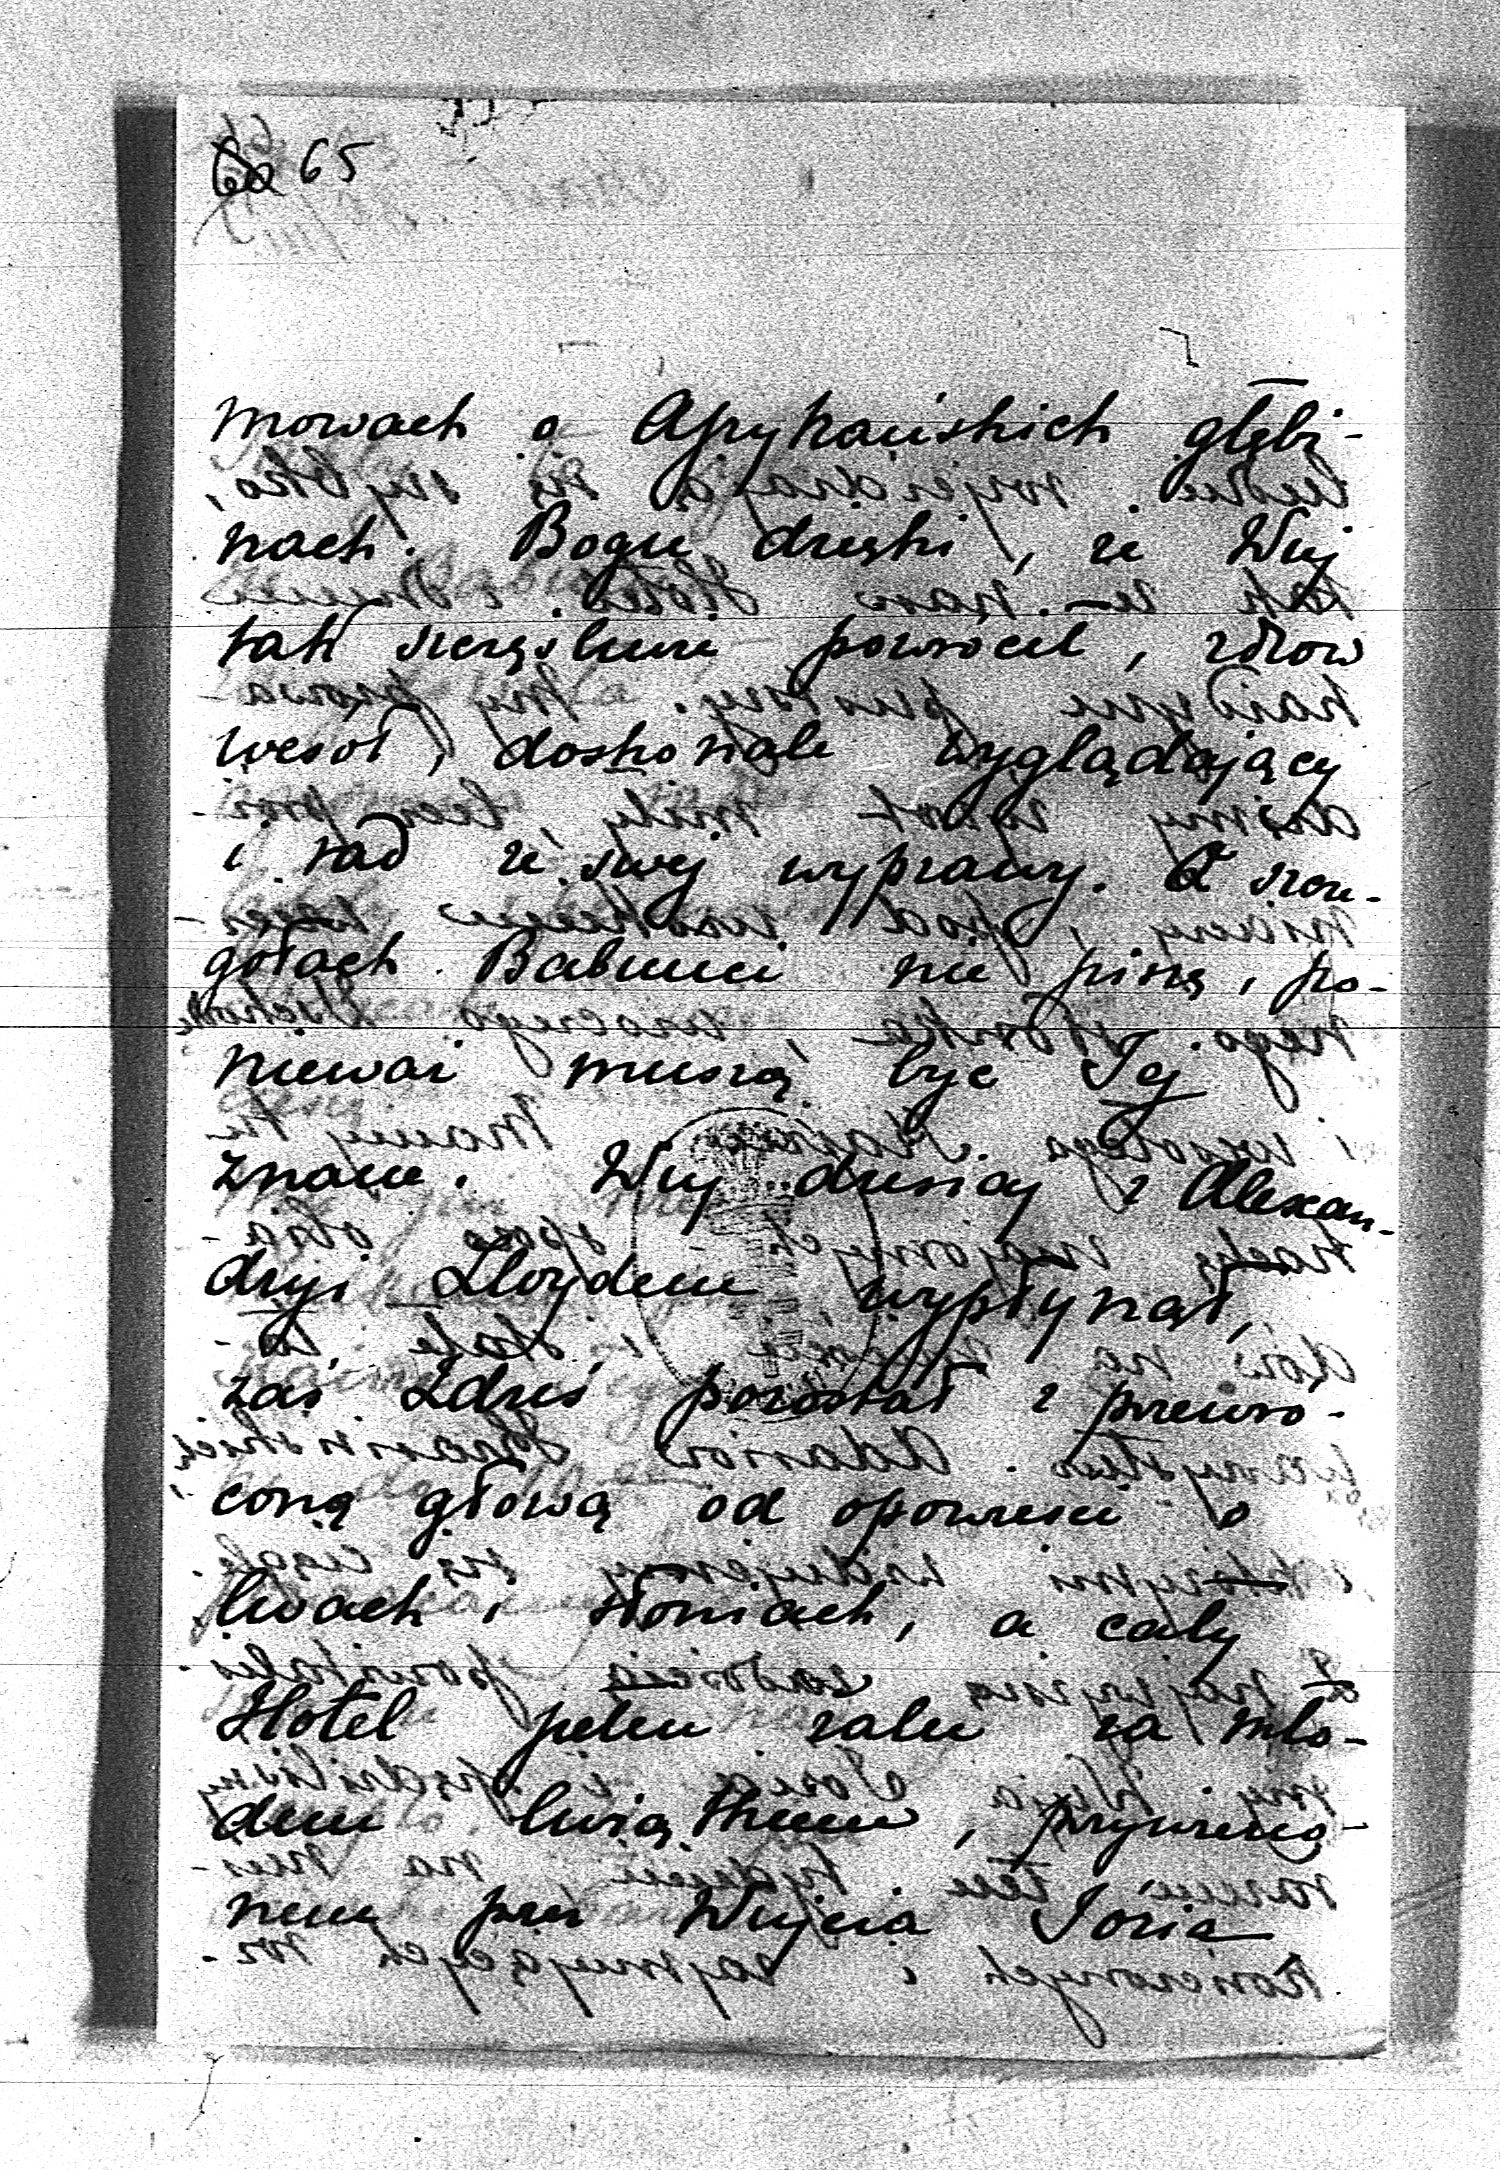 65
mowach o Afrykańskich głębi-
nach. Bogu dzięki, że Wuj
tak szczęśliwie powrócił, zdrow
wesoł, doskonale wyglądający
i rad ze swej wyprawy. O szcze-
gołach Babuni nie piszę, po-
nieważ muszą być Jej
znane. Wuj dzisiaj z Alexan-
dryi Lloydem wypłynął,
zaś Zdziś pozostał z przewro-
coną głową od opowieści o
lwach i słoniach, a cały
Hotel pełen żalu za mło-
dem lwiątkiem, przywiezio-
nem prze Wujcia Józia